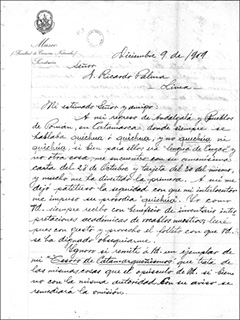 Museo
(Facultad de Ciencias Naturales)
Secretaría
Diciembre 9 de 1909
Señor
D. Ricardo Palma
Lima
Mi estimado Señor y amigo:
A mi regreso de Andalgalá y Pueblos
de Pomán, en Catamarca, donde siempre se
hablaba quichua ó quíchua, y no quechua ni
quichúa, si bien para ellos era lengua de Cuzco, y
no otra cosa, me encuentro con su amenísima
carta del 23 de Octubre y tarjeta del 20 del mismo, y
mucho me ha divertido la primera. A mi me
dejó patitieso la seguridad con que mi interlocutor
me impuso su prosodia quichúa. Yo como
Ud. siempre recibo con beneficio de inventario inter-
pretaciones académicas de vocablos nuestros, leeré
pues con gusto y provecho el folleto con que Ud.
se ha dignado obsequiarme.
Ignoro si remití á Ud. un ejemplar de
mi "Tesoro de Catamarqueñismos" que trata de
las mismas cosas que el opúsculo de Ud. si bien
no con la misma autoridad. Con su aviso se
remediará la omisión.